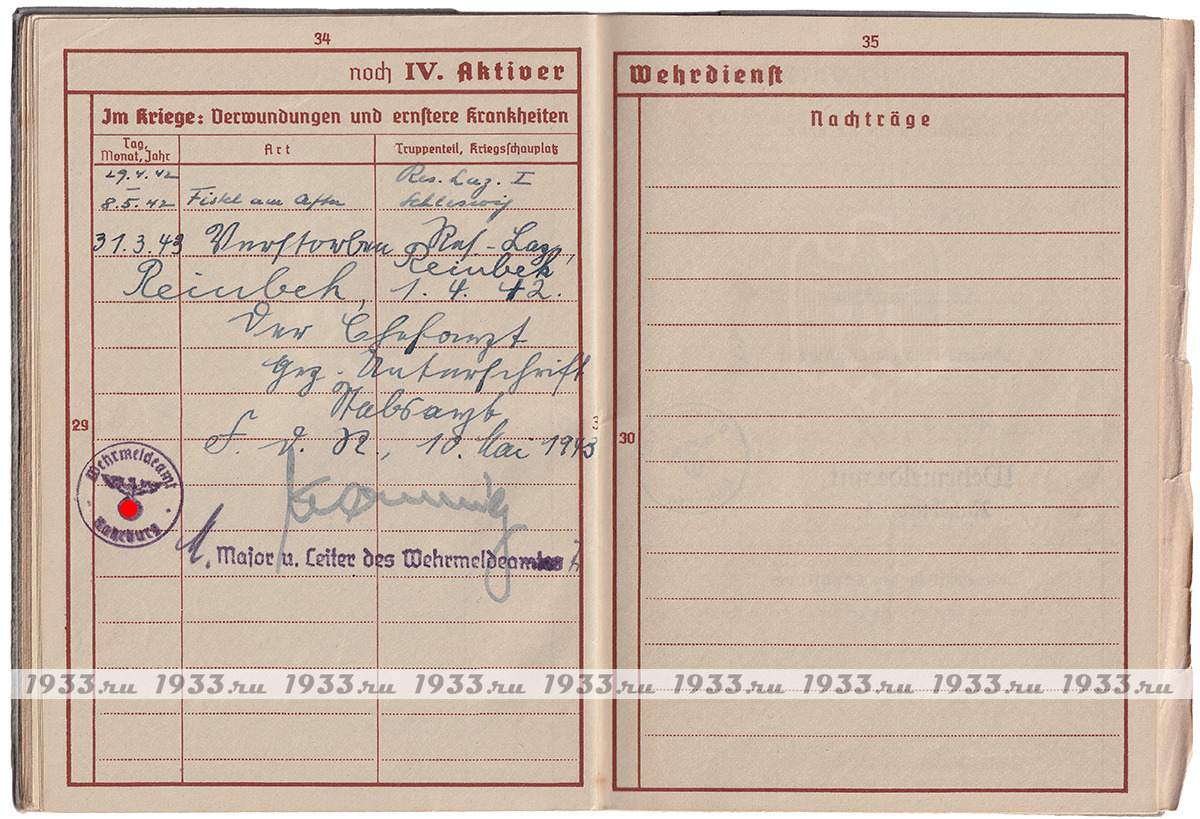 34
noch IV. Aktiver
Im Kriege: Verwundungen und ernstere Krankheiten
Tag, Monat, Jahr
Art
Truppenteil, Kriegsschauplatz
29.4.42 Res. Laz. I
–
8.5.42 Fistel am After Schleswig
31.3.43 Verstorben Res-Laz,
Reinbek
Reinbek, 1. 4. 42.
Der Chefarzt
Gez. Unterschrift
Stabsarzt
F. d. R., 10. Mai 1943
29
Wehrmeldeamt
Major u. Leiter des Wehrmeldeamtes
35
Wehrdienst
Nachträge
30
Wehrmeldeamt
1933.ru 1933.ru 1933.ru 1933.ru 1933.ru 1933.ru 1933.ru 1933.ru 1933.ru